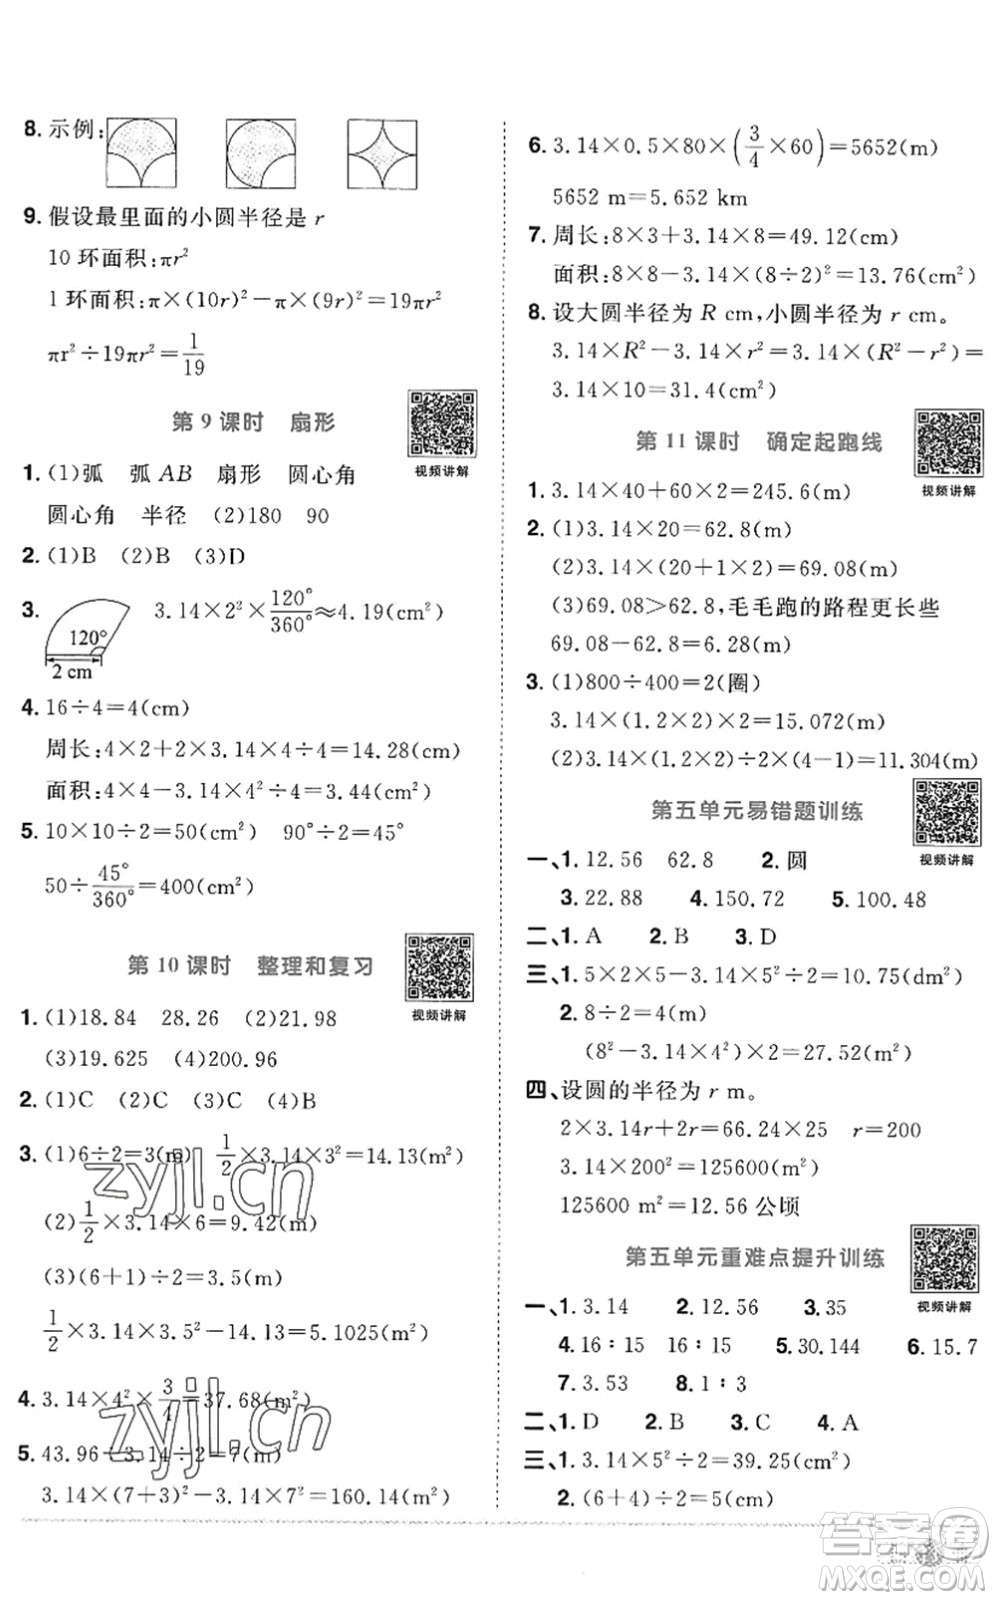 8. 示例:
9. 假设最里面的小圆半径是 r
10 环面积:πr²
1 环面积:π×(10r)²−π×(9r)²=19πr²
πr²÷19πr²=1/19
第 9 课时 扇形
视频讲解
1. (1)弧 弧 AB 扇形 圆心角
圆心角 半径 (2)180 90
2. (1)B (2)B (3)D
3. 120° 2 cm 3.14×2²×120°/360°≈4.19(cm²)
4. 16÷4=4(cm)
周长:4×2+2×3.14×4÷4=14.28(cm)
面积:4×4−3.14×4²÷4=3.44(cm²)
5. 10×10÷2=50(cm²) 90°÷2=45°
50÷45°/360°=400(cm²)
第 10 课时 整理和复习
视频讲解
1. (1)18.84 28.26 (2)21.98
(3)19.625 (4)200.96
2. (1)C (2)C (3)C (4)B
3. (1)6÷2=3(m) 1/2×3.14×3²=14.13(m²)
(2)1/2×3.14×6=9.42(m)
(3)(6+1)÷2=3.5(m)
1/2×3.14×3.5²−14.13=5.1025(m²)
4. 3.14×4²×3/4=37.68(cm²)
5. 43.96÷3.14÷2=7(m)
3.14×(7+3)²−3.14×7²=160.14(m²)
6. 3.14×0.5×80×(3/4×60)=5652(m)
5652 m=5.652 km
7. 周长:8×3+3.14×8=49.12(cm)
面积:8×8−3.14×(8÷2)²=13.76(cm²)
8. 设大圆半径为 R cm,小圆半径为 r cm。
3.14×R²−3.14×r²=3.14×(R²−r²)=
3.14×10=31.4(cm²)
第 11 课时 确定起跑线
视频讲解
1. 3.14×40+60×2=245.6(m)
2. (1)3.14×20=62.8(m)
(2)3.14×(20+1×2)=69.08(m)
(3)69.08>62.8,毛毛跑的路程更长些
69.08−62.8=6.28(m)
3. (1)800÷400=2(圈)
3.14×(1.2×2)×2=15.072(m)
(2)3.14×(1.2×2)÷2×(4−1)=11.304(m)
第五单元易错题训练
视频讲解
一、1. 12.56 62.8 2. 圆
3. 22.88 4. 150.72 5. 100.48
二、1. A 2. B 3. D
三、1. 5×2×5−3.14×5²÷2=10.75(dm²)
2. 8÷2=4(m)
(8²−3.14×4²)×2=27.52(m²)
四、设圆的半径为 r m。
2×3.14r+2r=66.24×25 r=200
3.14×200²=125600(m²)
125600 m²=12.56 公顷
第五单元重难点提升训练
视频讲解
一、1. 3.14 2. 12.56 3. 35
4. 16∶15 16∶15 5. 30.144 6. 15.7
7. 3.53 8. 1∶3
二、1. D 2. B 3. C 4. A
三、1. 3.14×5²÷2=39.25(cm²)
2. (6+4)÷2=5(cm)
zyjl.cn
zyjl.cn
答案圈
MXQE.COM